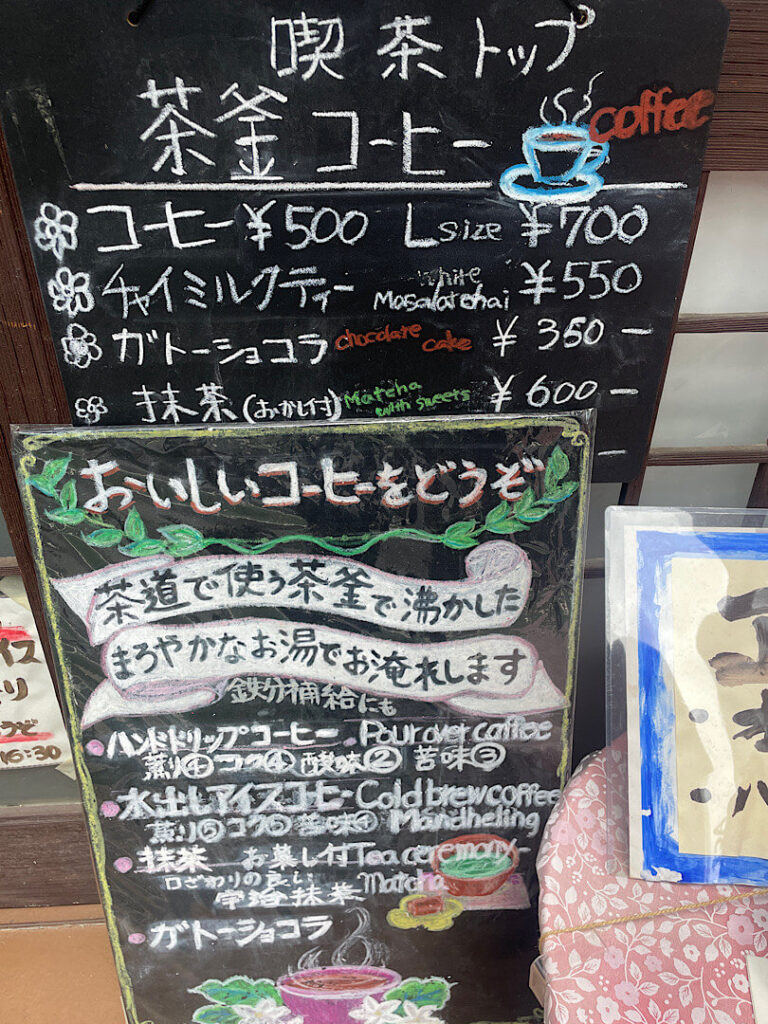 喫茶トップ
茶釜コーヒー coffee
コーヒー ¥500 L size ¥700
チャイミルクティー White Masalatchai ¥550
ガトーショコラ chocolate cake ¥350-
抹茶(おかし付) Matcha with sweets ¥600-
おいしいコーヒーをどうぞ
茶道で使う茶釜で沸かした
まろやかなお湯でお淹れします
鉄分補給にも
ハンドドリップコーヒー Pour over caffee
煎り④ コク④ 酸味② 苦味③
水出しアイスコーヒー Cold brew coffee
煎り⑤ コク⑤ 苦味④ Mandheling
抹茶 お菓子付 Tea ceremony-
口ざわりの良い Matcha
宇治抹茶
ガトーショコラ
イス
16:30